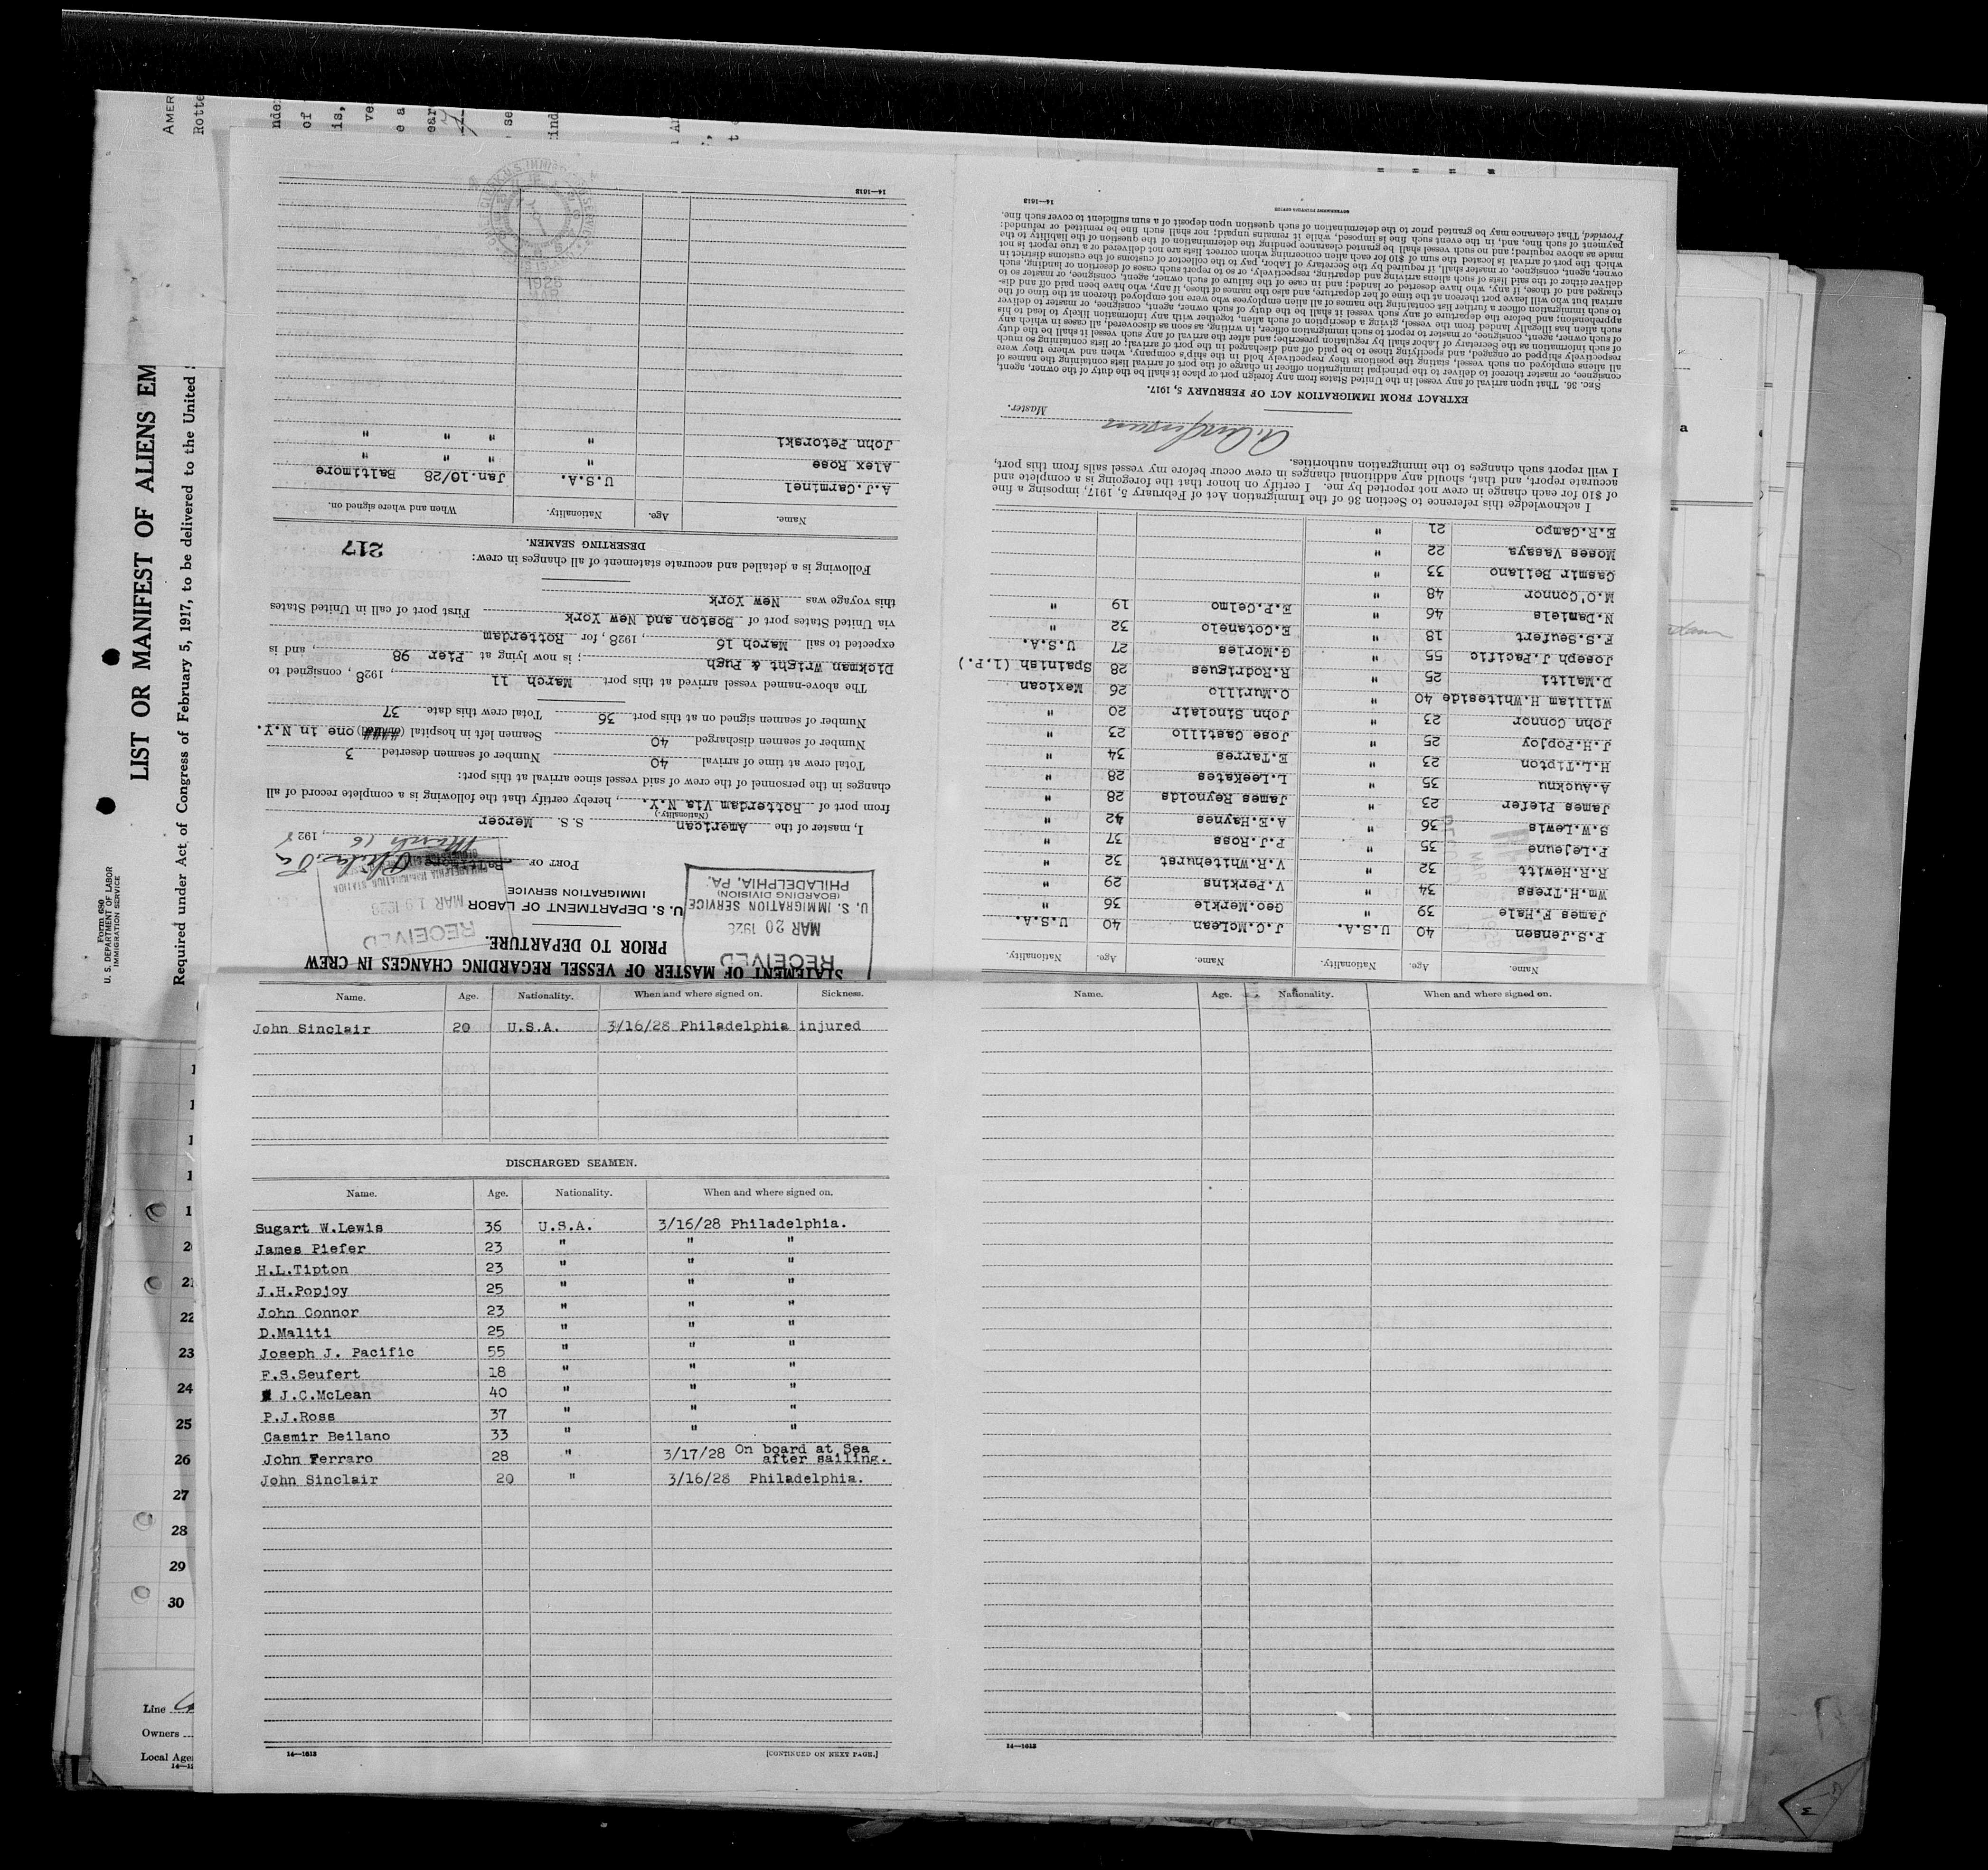 LIST OR MANIFEST OF ALIENS EM
Required under Act of Congress of February 5, 1917, to be delivered to the United
Form 680
U. S. DEPARTMENT OF LABOR
IMMIGRATION SERVICE
AMER
Rotte
STATEMENT OF MASTER OF VESSEL REGARDING CHANGES IN CREW
PRIOR TO DEPARTURE.
RECEIVED
MAR 20 1928
U. S. IMMIGRATION SERVICE
(BOARDING DIVISION)
PHILADELPHIA, PA.
RECEIVED
MAR 19 1928
U. S. DEPARTMENT OF LABOR
IMMIGRATION SERVICE
PORT OF Baltimore Phila. Pa
March 16, 1928
I, master of the American S. S. Mercer
(Nationality.)
from port of Rotterdam Via N.Y., hereby certify that the following is a complete record of all
changes in the personnel of the crew of said vessel since arrival at this port:
Total crew at time of arrival 40 Number of seamen deserted 3
Number of seamen discharged 40 Seamen left in hospital one in N.Y.
Number of seamen signed on at this port 36 Total crew this date 37
The above-named vessel arrived at this port March 11, 1928, consigned to
Dickman Wright & Pugh; is now lying at Pier 98, and is
expected to sail March 16, 1928, for Rotterdam
via United States port of Boston and New York First port of call in United States
this voyage was New York
Following is a detailed and accurate statement of all changes in crew:
DESERTING SEAMEN. 217
Name. Age. Nationality. When and where signed on.
A.J.Carminel U.S.A. Jan.10/28 Baltimore
Alex Rose " " " "
John Petorski " " " "
14—1613
Name. Age. Nationality. Name. Age. Nationality.
P.S.Jensen 40 U.S.A. J.C.McLean 40 U.S.A.
James F.Hale 39 " Geo.Merkle 36 "
Wm.H.Tress 34 " V.Perkins 29 "
R.R.Hewitt 32 " V.R.Whitehurst 32 "
P.Lejeune 35 " P.J.Ross 37 "
S.W.Lewis 36 " A.E.Haynes 42 "
James Piefer 23 " James Reynolds 28 "
A.Aucknu 35 " L.Leekates 28 "
H.L.Tipton 23 " E.Tarres 34 "
J.H.Popjoy 25 " Jose Castillo 23 "
John Connor 23 " John Sinclair 20 "
William H.Whiteside 40 " O.Murillo 26 Mexican
D.Maliti 25 " R.Rodrigues 28 Spainish (1.P.)
Joseph J.Pacific 55 " G.Morles 27 U.S.A.
F.S.Seufert 18 " E.Cotanelo 32 "
N.Daniels 46 " E.P.Celmo 19 "
M.O'Connor 48 "
Casmir Beilano 33 "
Moses Vasaya 22 "
E.R.Campo 21 "
I acknowledge this reference to Section 36 of the Immigration Act of February 5, 1917, imposing a fine
of $10 for each change in crew not reported by me. I certify on honor that the foregoing is a complete and
accurate report, and that, should any additional changes in crew occur before my vessel sails from this port,
I will report such changes to the immigration authorities.
Master.
EXTRACT FROM IMMIGRATION ACT OF FEBRUARY 5, 1917.
SEC. 36. That upon arrival of any vessel in the United States from any foreign port or place it shall be the duty of the owner, agent,
consignee, or master thereof to deliver to the principal immigration officer in charge of the port of arrival lists containing the names of
all aliens employed on such vessel, stating the positions they respectively hold in the ship's company, when and where they were
respectively shipped or engaged, and specifying those to be paid off and discharged in the port of arrival; or lists containing so much
of such information as the Secretary of Labor shall by regulation prescribe; and after the arrival of any such vessel it shall be the duty
of such owner, agent, consignee, or master to report to such immigration officer, in writing, as soon as discovered, all cases in which any
such alien has illegally landed from the vessel, giving a description of such alien, together with any information likely to lead to his
apprehension; and before the departure of any such vessel it shall be the duty of such owner, agent, consignee, or master to deliver
to such immigration officer a further list containing the names of all alien employees who were not employed thereon at the time of the
arrival but who will leave port thereon at the time of her departure, and also the names of those, if any, who have been paid off and dis-
charged and of those, if any, who have deserted or landed; and in case of the failure of such owner, agent, consignee, or master so to
deliver either of the said lists of such aliens arriving and departing, respectively, or so to report such cases of desertion or landing, such
owner, agent, consignee, or master shall, if required by the Secretary of Labor, pay to the collector of customs of the customs district in
which the port of arrival is located the sum of $10 for each alien concerning whom correct lists are not delivered or a true report is not
made as above required; and no such vessel shall be granted clearance pending the determination of the question of the liability to the
payment of such fine, and, in the event such fine is imposed, while it remains unpaid; nor shall such fine be remitted or refunded:
Provided, That clearance may be granted prior to the determination of such question upon deposit of a sum sufficient to cover such fine.
14—1613
GOVERNMENT PRINTING OFFICE
Name. Age. Nationality. When and where signed on. Sickness.
John Sinclair 20 U.S.A. 3/16/28 Philadelphia injured
DISCHARGED SEAMEN.
Name. Age. Nationality. When and where signed on.
Sugart W.Lewis 36 U.S.A. 3/16/28 Philadelphia.
James Piefer 23 " " "
H.L.Tipton 23 " " "
J.H.Popjoy 25 " " "
John Connor 23 " " "
D.Maliti 25 " " "
Joseph J. Pacific 55 " " "
F.S.Seufert 18 " " "
J.C.McLean 40 " " "
P.J.Ross 37 " " "
Casmir Beilano 33 " " "
John Ferraro 28 " 3/17/28 On board at Sea
after sailing.
John Sinclair 20 " 3/16/28 Philadelphia.
14—1613
[CONTINUED ON NEXT PAGE.]
Name. Age. Nationality. When and where signed on.
14—1613
21
22
23
24
25
26
27
28
29
30
Line
Owners
Local Age